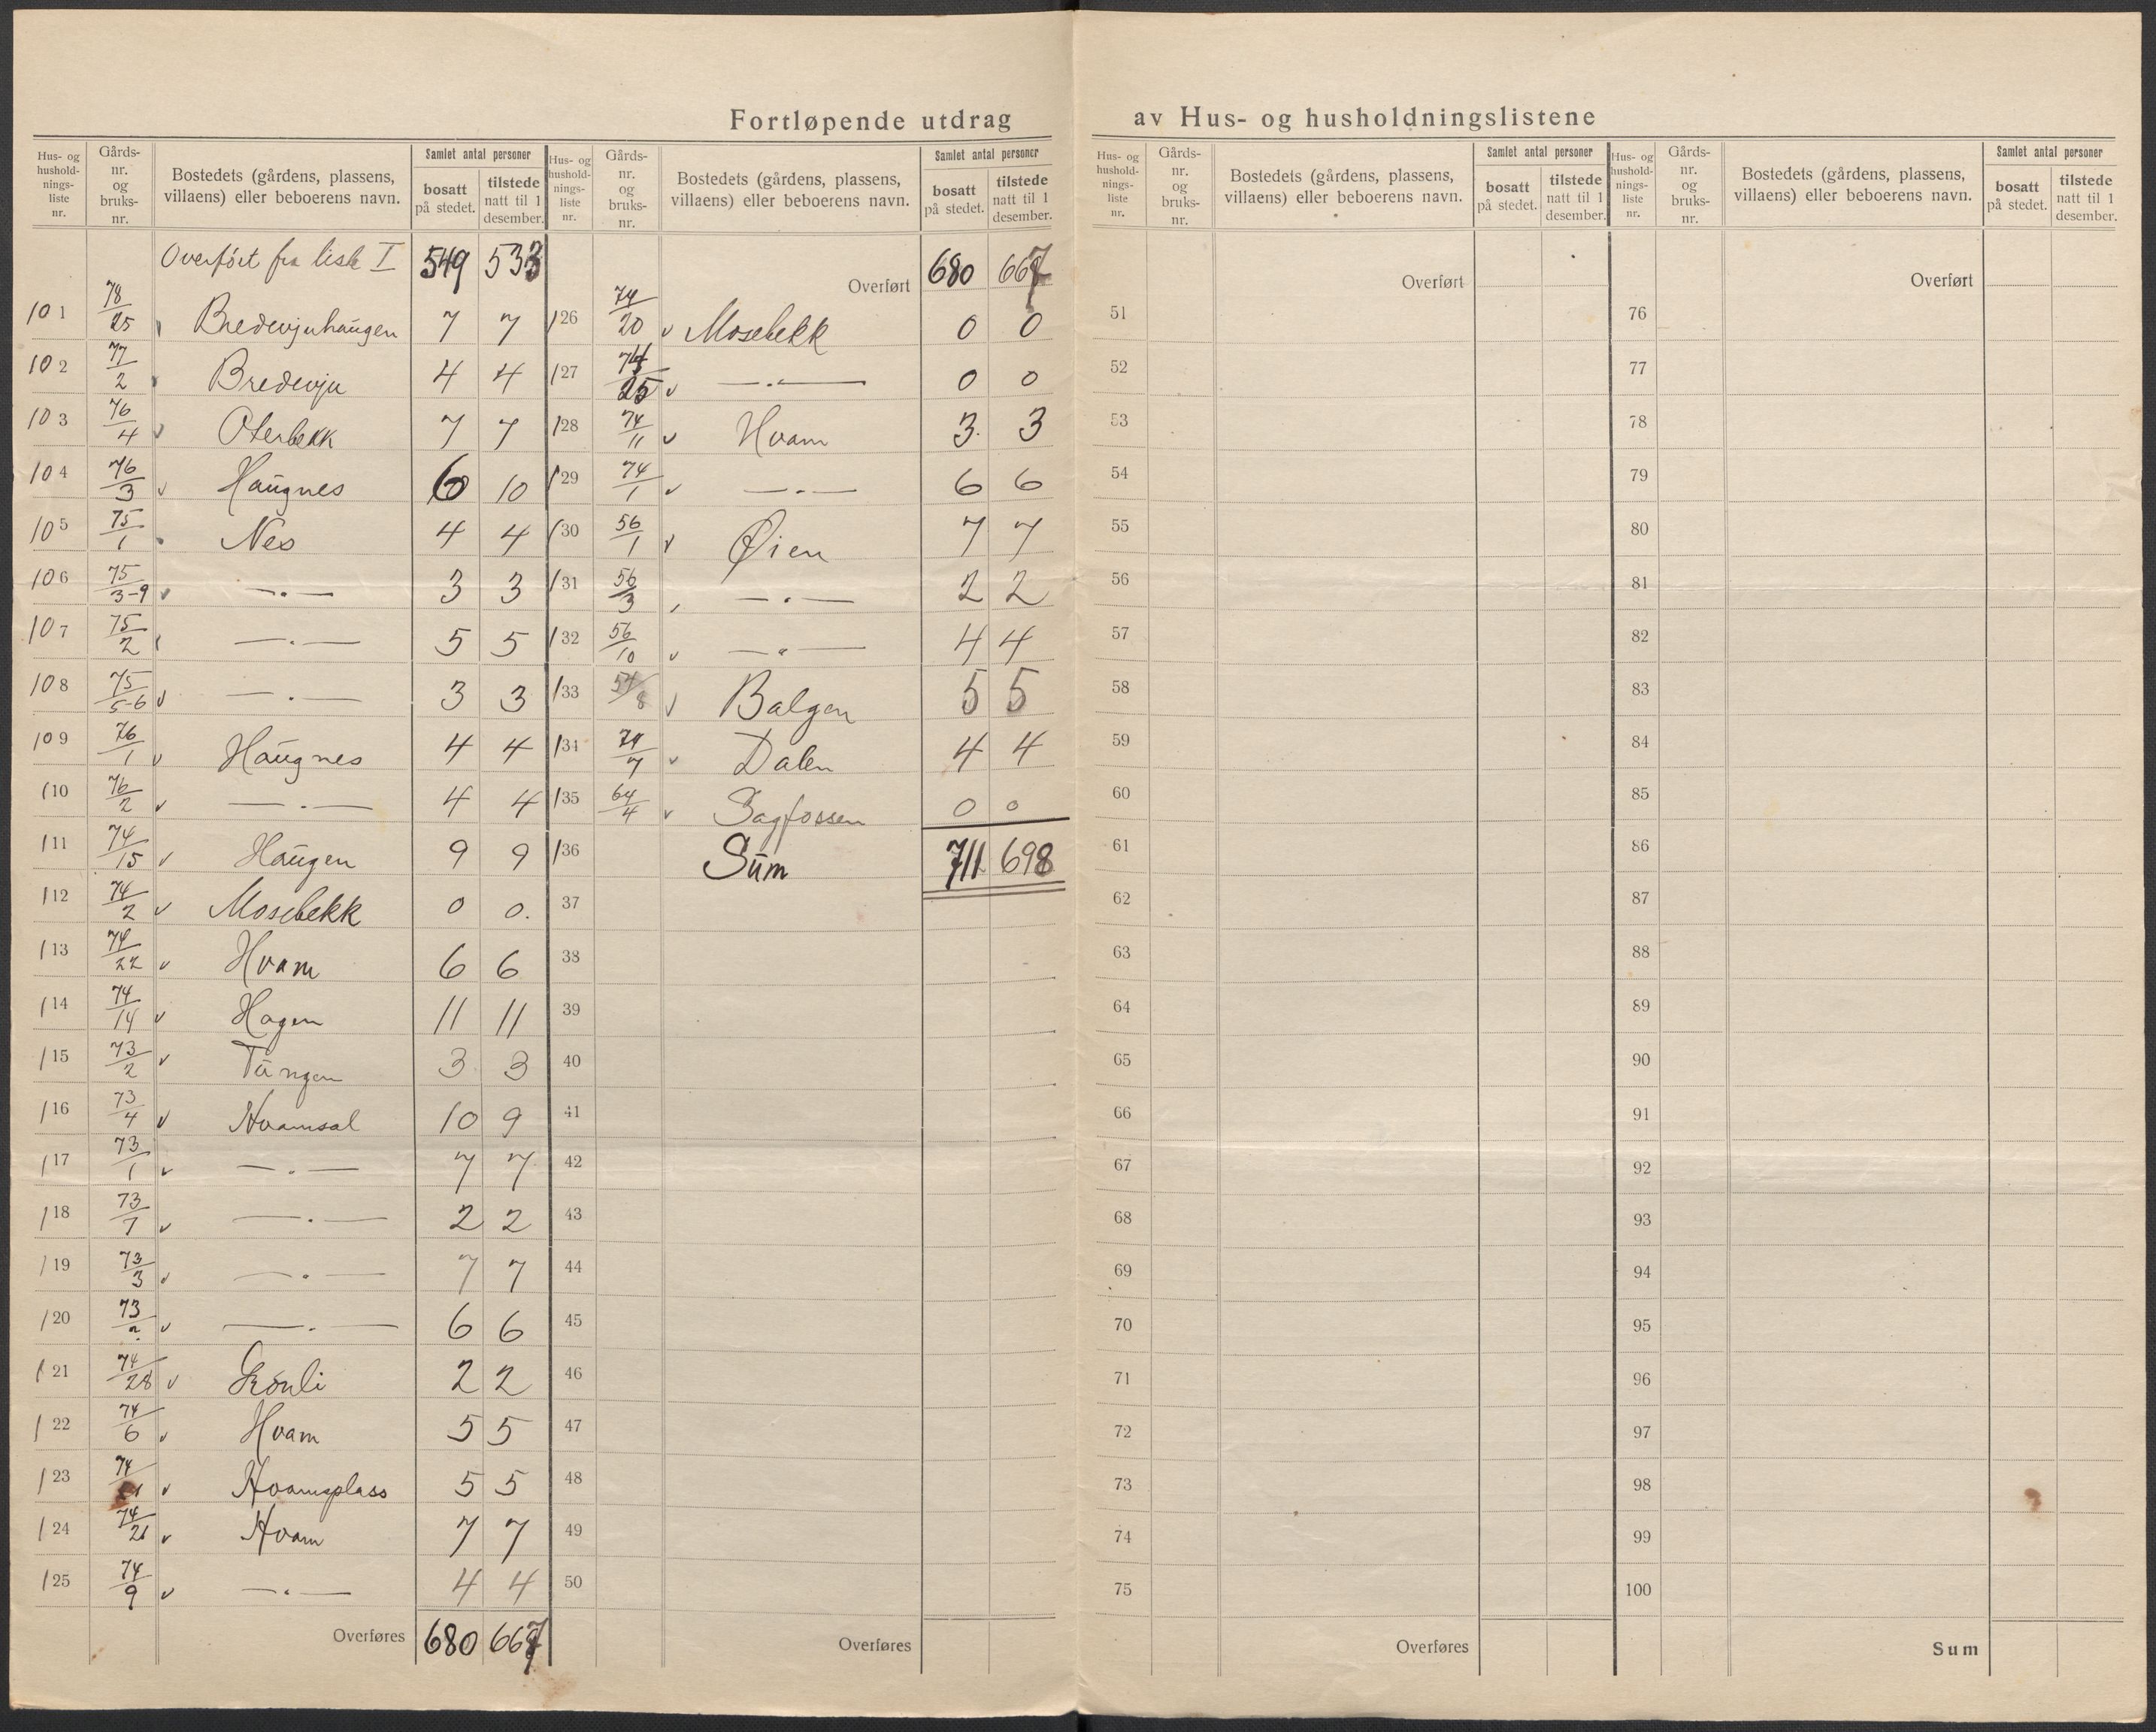 Fortløpende utdrag av Hus- og husholdningslistene
Hus- og husholdnings-liste nr. | Gårds-nr. og bruks-nr. | Bostedets (gårdens, plassens, villaens) eller beboerens navn. | Samlet antal personer | bosatt på stedet. | tilstede natt til 1 desember.
Overført fra liste I 549 533
101 78/25 Bredevjuhaugen 7 7
102 77/2 Bredevju 4 4
103 76/4 Oterbekk 7 7
104 76/3 Haugnes 6 10
105 75/1 Nes 4 4
106 75/3-9 —.— 3 3
107 75/2 —.— 5 5
108 75/5-6 —.— 3 3
109 76/1 Haugnes 4 4
110 76/2 —.— 4 4
111 74/15 Haugen 9 9
112 74/2 Mosebekk 0 0.
113 74/22 Hvam 6 6
114 74/14 Hagen 11 11
115 73/2 Tangen 3 3
116 73/4 Hvamsal 10 9
117 73/1 —.— 7 7
118 73/7 —.— 2 2
119 73/3 —.— 7 7
120 73/ —.— 6 6
121 74/28 Grönli 2 2
122 74/6 Hvam 5 5
123 74/ Hvamsplass 5 5
124 74/21 Hvam 7 7
125 74/9 —.— 4 4
Overføres 680 667
Hus- og husholdnings-liste nr. | Gårds-nr. og bruks-nr. | Bostedets (gårdens, plassens, villaens) eller beboerens navn. | Samlet antal personer | bosatt på stedet. | tilstede natt til 1 desember.
Overført 680 667
126 74/20 Mosebekk 0 0
127 74/25 —.— 0 0
128 74/11 Hvam 3. 3
129 74/1 —.— 6 6
130 56/1 Øien 7 7
131 56/3 —.— 2 2
132 56/10 —.— 4 4
133 54/8 Balgen 5 5
134 74/7 Dalen 4 4
135 64/4 Sagfossen 0 0
136 Sum 711 698
37
38
39
40
41
42
43
44
45
46
47
48
49
50
Overføres
Hus- og husholdnings-liste nr. | Gårds-nr. og bruks-nr. | Bostedets (gårdens, plassens, villaens) eller beboerens navn. | Samlet antal personer | bosatt på stedet. | tilstede natt til 1 desember.
Overført
51
52
53
54
55
56
57
58
59
60
61
62
63
64
65
66
67
68
69
70
71
72
73
74
75
Overføres
Hus- og husholdnings-liste nr. | Gårds-nr. og bruks-nr. | Bostedets (gårdens, plassens, villaens) eller beboerens navn. | Samlet antal personer | bosatt på stedet. | tilstede natt til 1 desember.
Overført
76
77
78
79
80
81
82
83
84
85
86
87
88
89
90
91
92
93
94
95
96
97
98
99
100
Sum